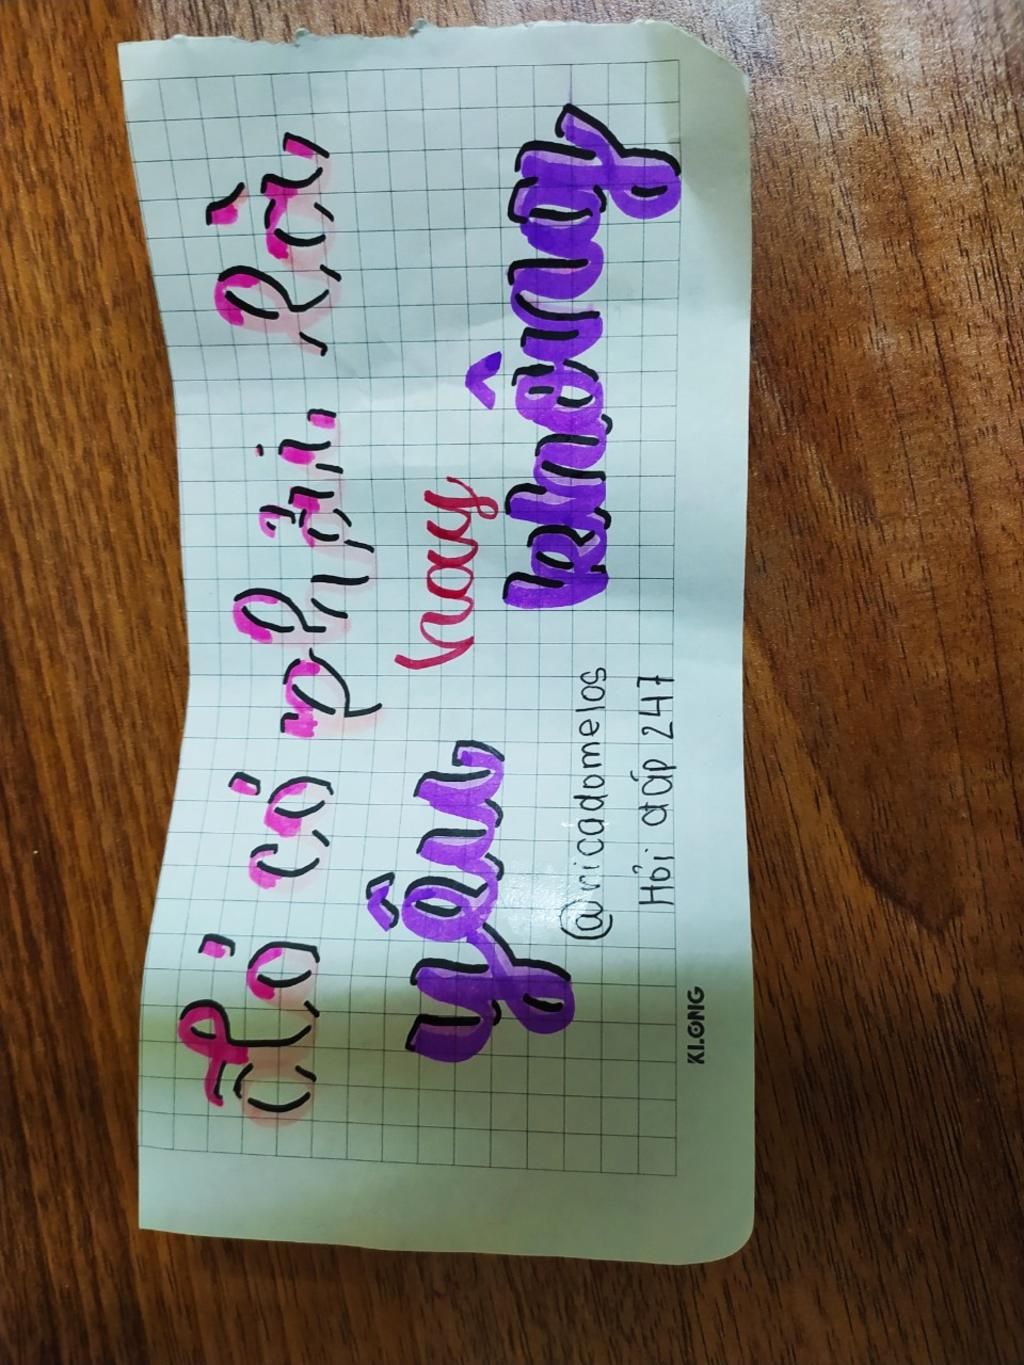 đó có phải là
yêu hay không
@nicadomelos
Hỏi đáp 247
KLONG